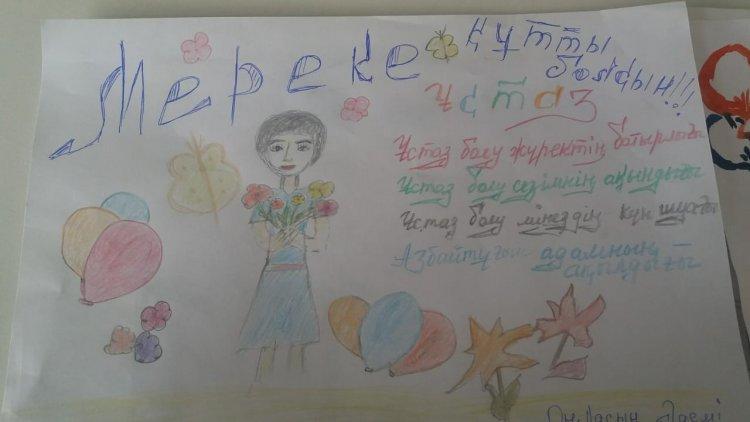 Мереке құтты
болсын!!!
Ұстаз
Ұстаз болу жүректің батырлығы
Ұстаз болу сезімнің ақындығы
Ұстаз болу мінездің күн шуағы
Азбайтұғын адамның
ақылдығы